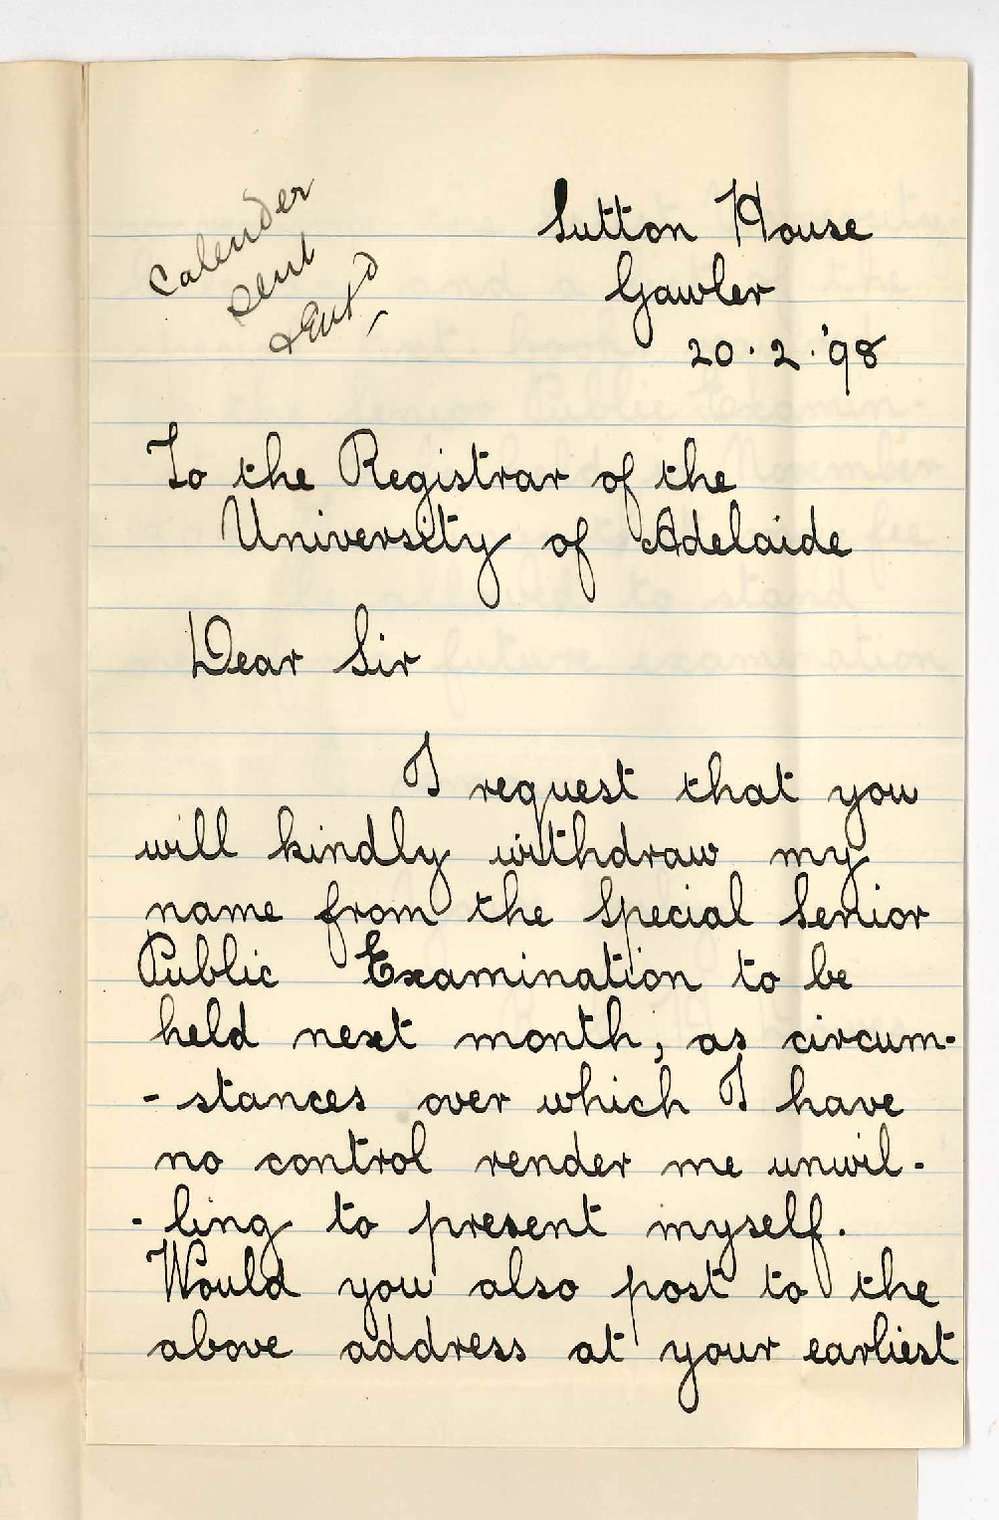 Calender
sent
Sutton House
Gawler
20 . 2 . '98
To the Registrar of the
University of Adelaide
Dear Sir
I request that you
will kindly withdraw my
name from the Special Senior
Public Examination to be
held next month; as circum-
- stances over which I have
no control render me unwil-
- ling to present myself.
Would you also post to the
above address at your earliest